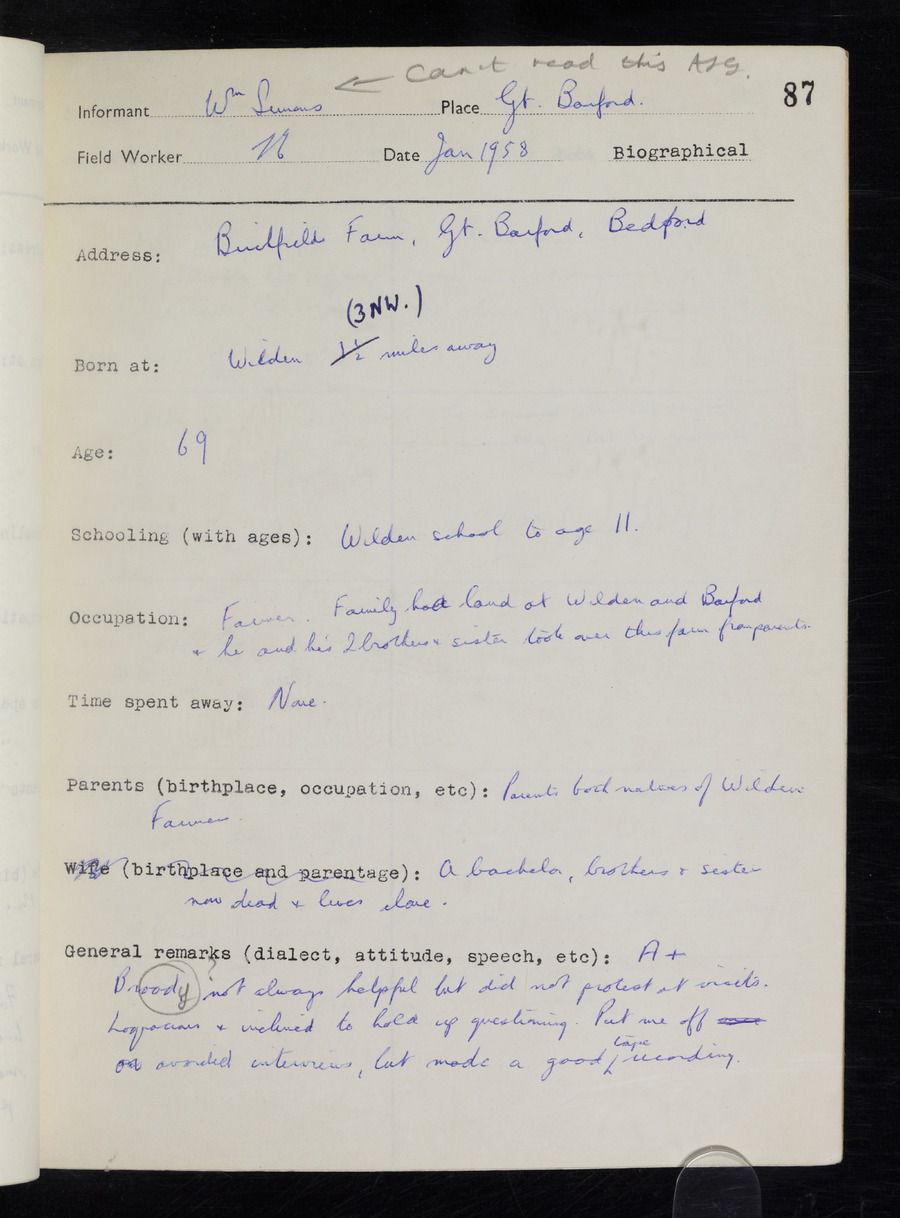 ← Can't read this AJG.
87
Informant Wm Place Gt. Barford.
Field Worker N Date Jan 1958 Biographical
Address: Farm, Gt. Barford, Bedford
(3NW.)
Born at: Wilden 1½ miles away
Age: 69
Schooling (with ages): Wilden school to age 11.
Occupation: Farmer. Family had land at Wilden and Barford
+ he and his 2 brothers + sister took over this farm from parents.
Time spent away: None.
Parents (birthplace, occupation, etc): Parents both natives of Wilden
Farmer.
Wife (birthplace and parentage): A bachelor, brothers + sister
now dead + lives alone.
General remarks (dialect, attitude, speech, etc): A+
?
Broady not always helpful but did not protest at visits.
Loquacious + inclined to hold up questioning. Put me off
avoided interviews, but made a good tape recording.